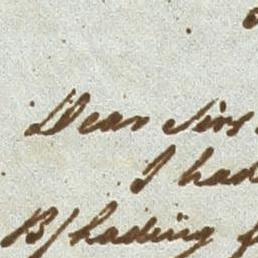 Dear Sirs
I had
B/Lading f